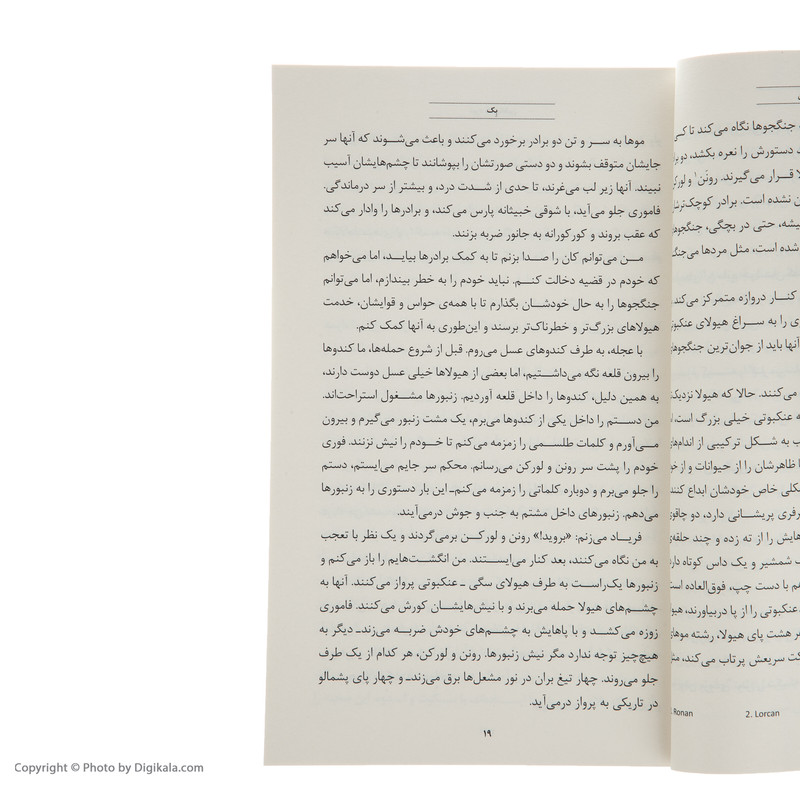 جنگجوها نگاه می‌کند تا
دستورش را نعره بکشد، دو
قرار می‌گیرند. رونَن¹ و
نشده است. برادر
حتی در بچگی،
شده است، مثل مردها
کنـار دروازه متمرکز می‌کند
را به ســراغ هیولای
آنها باید از جوان‌ترین
می‌کنند. حالا که هیولا
عنکبوتی خیلی بزرگ است
به شـکل ترکیبی از
ظاهرشان را از حیوانات و از
خاص خودشان ابداع
پریشـانی دارد، دو
را از ته زده و چند
شمشیر و یک داس کوتاه
با دست چپ، فوق‌العاده
عنکبوتی را از پا دربیاورند،
هشت پای هیولا، رشته
سریعش پرتاب می‌کند،
Ronan 2. Lorcan
بِک
موها به سـر و تن دو برادر برخورد می‌کنند و باعث می‌شـوند که آنها سر
جایشان متوقف بشوند و دو دستی صورتشان را بپوشانند تا چشم‌هایشان آسیب
نبیند. آنها زیر لب می‌غرند، تا حدی از شـدت درد، و بیشتر از سر درماندگی.
فاموری جلو می‌آید، با شوقی خبیثانه پارس می‌کند، و برادرها را وادار می‌کند
که عقب بروند و کورکورانه به جانور ضربه بزنند.
مـن می‌توانم کان را صـدا بزنم تا به کمک برادرها بیایـد، اما می‌خواهم
که خودم در قضیه دخالت کنـم. نباید خودم را به خطر بیندازم، اما می‌توانم
جنگجوها را به حال خودشـان بگذارم تا با همه‌ی حواس و قوایشان، خدمت
هیولاهای بزرگ‌تر و خطرناک‌تر برسند و این‌طوری به آنها کمک کنم.
با عجله، به طرف کندوهای عسل می‌روم. قبل از شروع حمله‌ها، ما کندوها
را بیرون قلعه نگه می‌داشـتیم، اما بعضی از هیولاها خیلی عسل دوست دارند،
به همین دلیل، کندوها را داخل قلعه آوردیم. زنبورها مشـغول استراحت‌اند.
من دسـتم را داخل یکی از کندوها می‌برم، یک مشت زنبور می‌گیرم و بیرون
مـی‌آورم و کلمات طلسـمی را زمزمه می‌کنم تا خـودم را نیش نزنند. فوری
خودم را پشت سر رونن و لورکن می‌رسانم. محکم سر جایم می‌ایستم، دستم
را جلو می‌برم و دوباره کلماتی را زمزمه می‌کنم‌ـ این بار دستوری را به زنبورها
می‌دهم. زنبورهای داخل مشتم به جنب و جوش درمی‌آیند.
فریـاد می‌زنم: «بروید!» رونن و لورکـن برمی‌گردند و یک نظر با تعجب
به من نگاه می‌کنند، بعد کنار می‌ایسـتند. من انگشـت‌هایم را باز می‌کنم و
زنبورها یک‌راسـت به طرف هیولای سگی ـ عنکبوتی پرواز می‌کنند. آنها به
چشـم‌های هیولا حمله می‌برند و با نیش‌هایشـان کورش می‌کنند. فاموری
زوزه می‌کشـد و با پاهایش به چشـم‌های خودش ضربـه می‌زندـ دیگر به
هیچ‌چیز توجه ندارد مگر نیش زنبورها. رونن و لورکن، هر کدام از یک طرف
جلو می‌روند. چهار تیغ بران در نور مشعل‌ها برق می‌زندـ و چهار پای پشمالو
در تاریکی به پرواز درمی‌آید.
۱۹
Copyright © Photo by Digikala.com